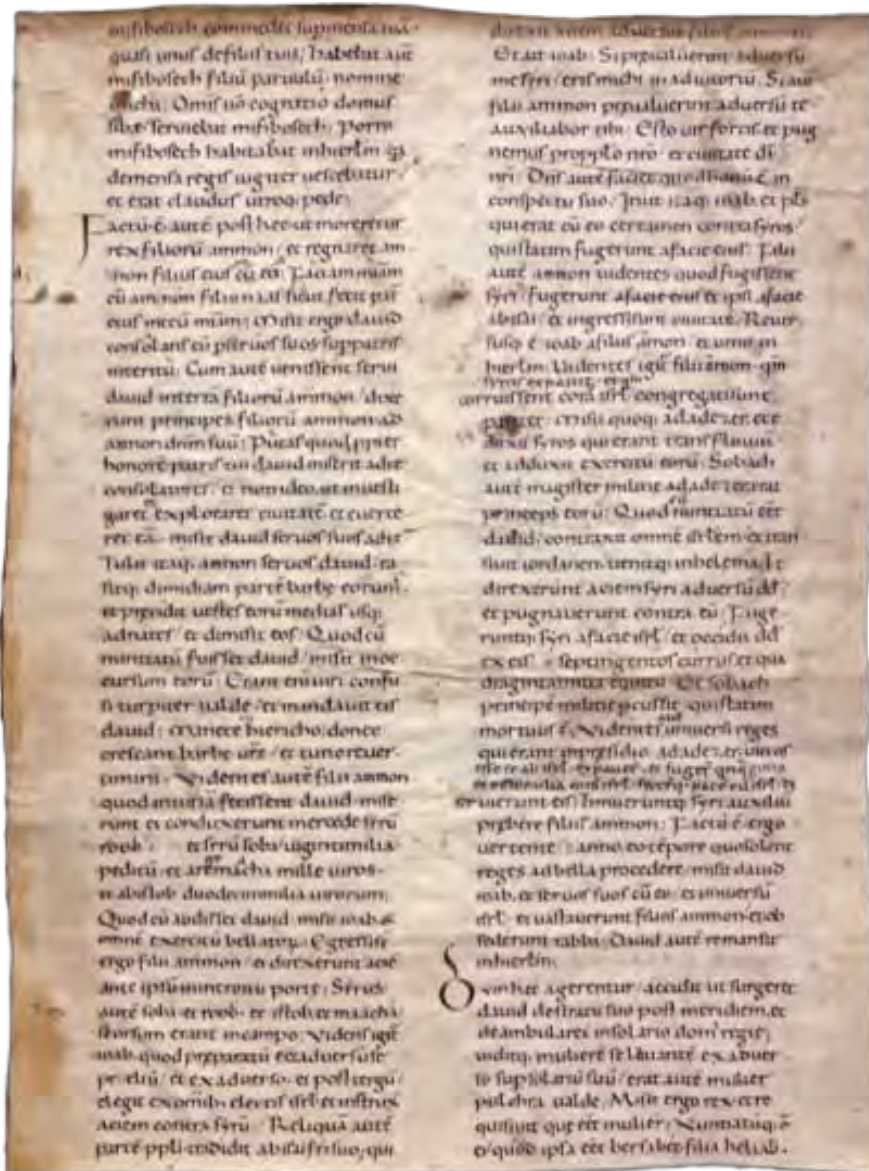 misibosech commedet sup mensā tuā
quasi unus de filiis tuis; habebat autē
misibosech filiū parvulū nomine
micha; Omīs ūo cognatio domus
sibæ serviebat misibosech; Porro
misibosech habitabat in hierlm̄ qa
de mensa regis iugiter vescebatur
et erat claudus utroq; pede;
Factū ē autē post hec ut moreretur
rex filiorū ammon et regnaret am
mon filius eius cū eo; Faciam mīam
cū ammon filio naas sicut fecit pat̄
eius mecū mīam; Misit ergo david
consolans eū p servos suos sup patris
interitu; Cum autē venissent servi
david in terrā filiorū ammon dixe
runt principes filiorū ammon ad
annon dnm̄ suū; Putas quod ppter
honorē patris tui david miserit ad te
consolatores et non ideo ut investi
garet et exploraret civitatē et everte
ret eā misit david servos suos ad te
Tulit itaq; annon servos david ra
sitq; dimidiam partē barbe eorum
et precidit vestes eorū medias usq;
ad nates et dimisit eos; Quod cū
nuntiatū fuisset david misit in oc
cursum eorū; Erant enim viri confu
si turpiter valde et mandavit eis
david; Manete hiericho donec
crescant barbe vr̄e et tunc rever
timini; Videntes autē filii ammon
quod iniuriā fecissent david mise
runt et conduxerunt mercede sirū
roob et sirū soba viginti milia
peditū et a rege maacha mille viros
et ab istob duodecim milia virorum;
Quod cū audisset david misit ioab &
omnē exercitū bellatorū; Egressi s̄
ergo filii ammon et direxerunt aciē
ante ipsū introitū porte; Sirus
autē soba et roob et istob et maacha
seorsum erant in campo; Videns igit̄
ioab quod preparatū eēt adversū se
prelium et ex adverso et post tergū
elegit ex omīb; electis isrl̄ et instruxit
aciem contra syrū; Reliquā autē
partē ppli tradidit abisai fr̄i suo; qui
direxit aciem adversus filios ammon
Et ait ioab; Si prevaluerint adversū
me syri eris michi in adiutoriū; Si aū
filii ammon prevaluerint adversū te
auxiliabor tibi; Esto vir fortis et pug
nemus pro pplo nr̄o et civitate dī
nr̄i; Dn̄s autē faciet quod bonū ē in
conspectu suo; Iniit itaq; ioab et pls̄
qui erat cū eo certamen contra syros
qui statim fugerunt a facie eius; Filii
autē ammon videntes quod fugissent
syri fugerunt et ipsi a facie
abisai et ingressi sunt civitatē; Rever
susq; ē ioab a filiis āmon et venit in
hierlm̄; Videntes igit̄ syri qm̄
corruissent corā isrl̄ congregati sunt
pariter; Misit quoq; adadezer et e
duxit syros qui erant trans fluviū
et adduxit exercitū eorū; Sobach
autē magister militie adadezer erat
princeps eorū; Quod cū nuntiatū eēt
david contraxit omnē isrl̄em et tran
sivit iordanem venitq; in helema; Et
direxerunt aciem syri adversū dd̄
et pugnaverunt contra eū; Fuge
runtq; syri a facie isrl̄ et occidit dd̄
ex eis septingentos currus et qua
draginta milia equitū; Et sobach
principē militie pcussit qui statim
mortuus ē; Videntes aut̄ universi reges
qui erant in presidio adadezer victos
se eē ab isrl̄
servierunt eis; Timueruntq; syri auxiliū
prebere filiis ammon; Factū ē ergo
vertente anno eo tēpore quo solent
reges ad bella procedere misit david
ioab et servos suos cū eo et universū
isrl̄ et vastaverunt filios ammon et ob
sederunt rabba; David autē remansit
in hierlm̄;
Dum hec agerentur accidit ut surgeret
david de stratu suo post meridiem et
deambularet in solario dom̄ regie;
viditq; mulierē se lavantē ex adver
so sup solariū suū erat autē mulier
pulchra valde; Misit ergo rex et re
quisivit que eēt mulier; Nuntiatūq; ē
ei quod ipsa eēt bersabee filia heliab.